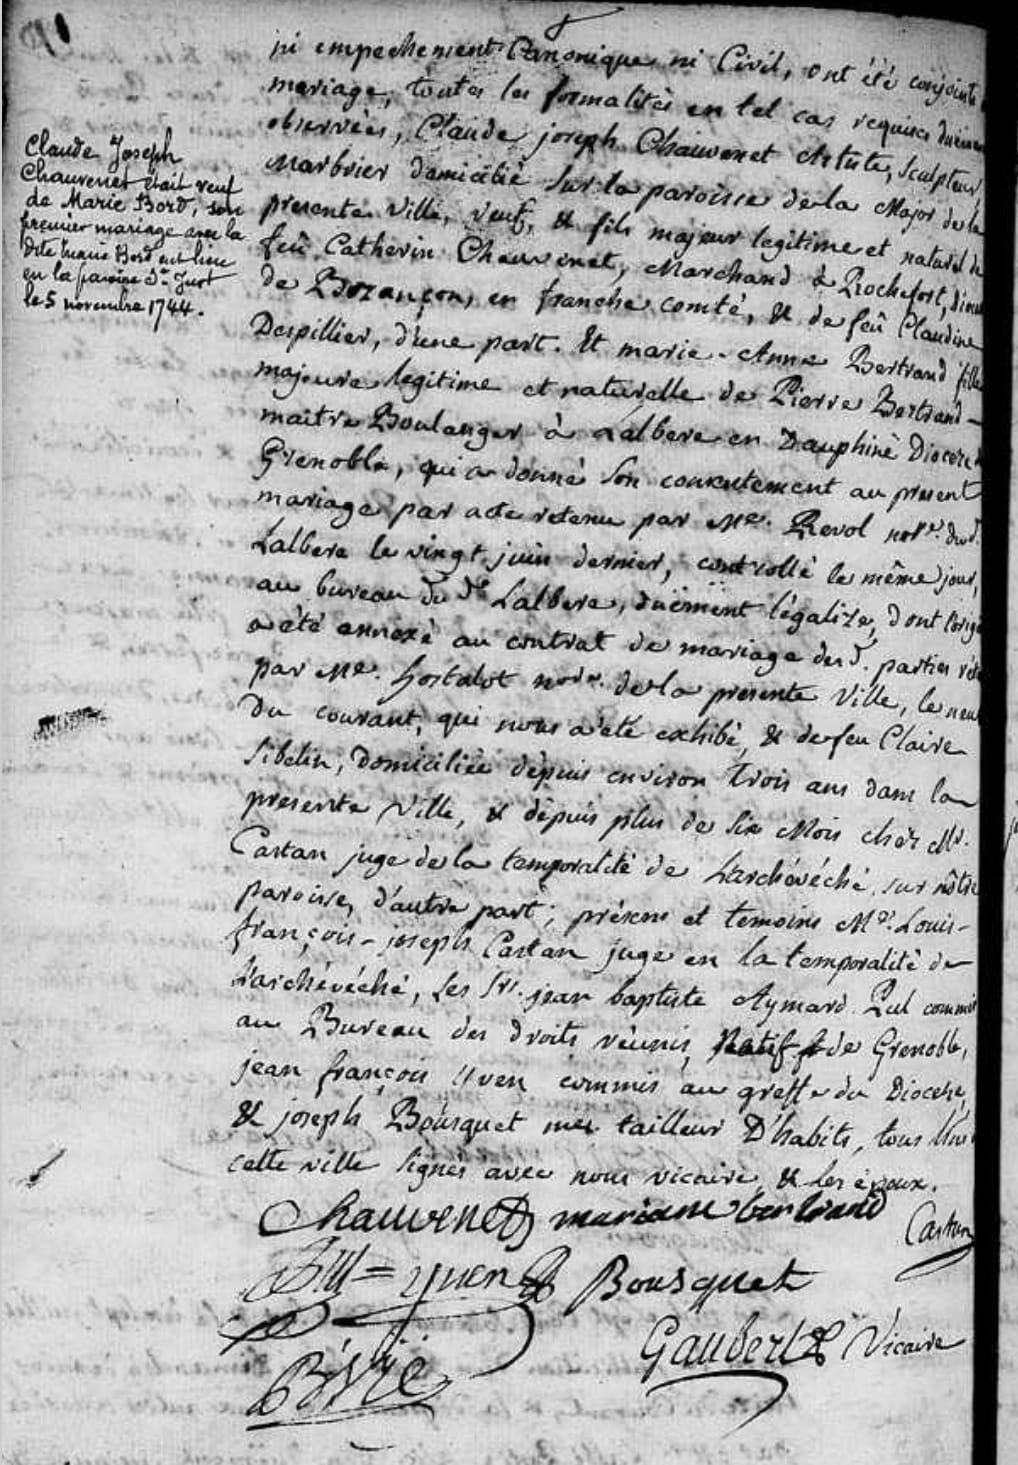 Claude Joseph
Chauvenet était veuf
de Marie Bord, son
premier mariage avec la
dite Marie Bord eut lieu
en la paroisse St. Just
le 5 novembre 1744.
ni empechement Canonique ni Civil, ont été conjoints
mariage, toutes les formalités en tel cas requises duëmen
observées, Claude joseph Chauvenet Artiste, Sculpteur,
Marbrier domicilié sur la paroisse de la Major de la
presente Ville, veuf, & fils majeur legitime et naturel de
feû Catherin Chauvenet, Marchand à Rochefort, dioce
de Bezançon, en franche comté, & de feû Claudine
Despillier, d'une part. Et marie-Anne Bertrand fille
majeure legitime et naturelle de Pierre Bertrand-
maitre Boulanger à Lalbere en Dauphiné Diocese
Grenoble, qui a donné son consentement au present
mariage par acte retenu par Me. Revol nore. dud.
Lalbere le vingt juin dernier, controllé le même jour,
au bureau du dt Lalbere, duëment légalizé, dont l'orig
a été annexé au contrat de mariage desd. parties ret
par Me. Hostalot nore. de la presente Ville, le neuf
du courant, qui nous a été exhibé, & de feu Claire
Sibelin, domiciliée depuis environ trois ans dans la
presente Ville, & depuis plus de six Mois chéz Mr.
Castan juge de la temporalité de L'archévéché, sur nôtre
paroisse, d'autre part; présens et temoins Mr. Louis-
françois-joseph Castan juge en la temporalité de
L'archévéché, Les Srs. jean baptiste Aymard Pul commis
au Bureau des droits réunis, Natif de Grenoble,
jean françois Yven commis au greffe du Diocese,
& joseph Bousquet me. tailleur D'habits, tous
cette ville signés avec nous vicaire, & les époux.
Chauvenet mariane bertrand
Castan
Pul = yven Bousquet
Gaubert Vicaire